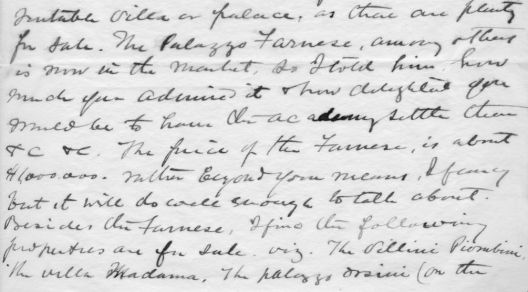 suitable villa or palace, as there are plenty
for sale. The Palazzo Farnese, among others
is now in the market, so I told him how
much you admired it & how delighted you
would be to have the academy settle there
&c &c. The price of the Farnese, is about
$1,000.000. rather beyond your means, I fancy
but it will do well enough to talk about.
Besides the Farnese, I find the following
properties are for sale. viz. The Villini Piombini,
The villa Madama, The palazzo Orsini (on the